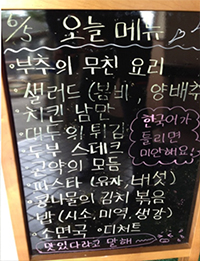 6/5 오늘 메뉴
·부추의 무친 요리
·샐러드 (봄비, 양배추
·치킨 남만
·대두의 튀김
·두부 스테크
·곤약의 모듬
·파스타 (유자, 버섯)
·콩나물의 김치 볶음
·밥 (시소, 미역, 생강)
·소면국 ·디저트
맛있다라고 말해~
한국어가
틀리면
미안해요!